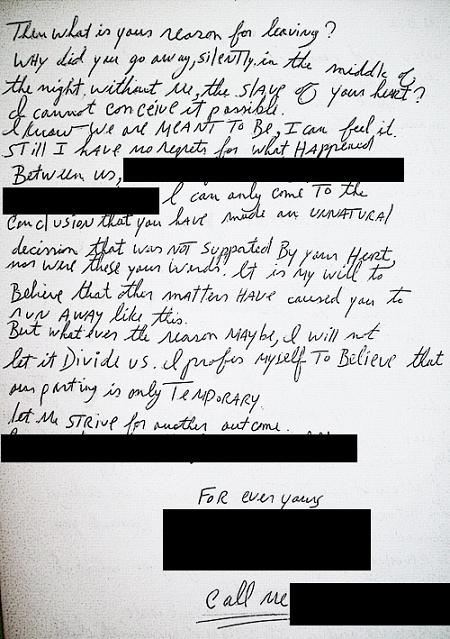 Then what is your reason for leaving?
Why did you go away, silently, in the middle of
the night, without me, the slave of your heret?
I cannot conceive it possible.
I know we are MEANT TO Be, I can feel it.
STill I HAVE no regrets for what HAppened
Between us,
I can only come TO the
conclusion that you HAVE made an UNNATURAl
decision that was NOT Suppoted By your Heret,
nor were these your words. It is My will to
Believe that other matters HAVE caused you to
run AWAy like this.
But what ever the reason MAybe, I will not
let it Divide us. I prefer Myself To Bilieve that
our parting is only TEMPORARY.
let Me STRIVE for another outcome.
FOR ever yours
Call me